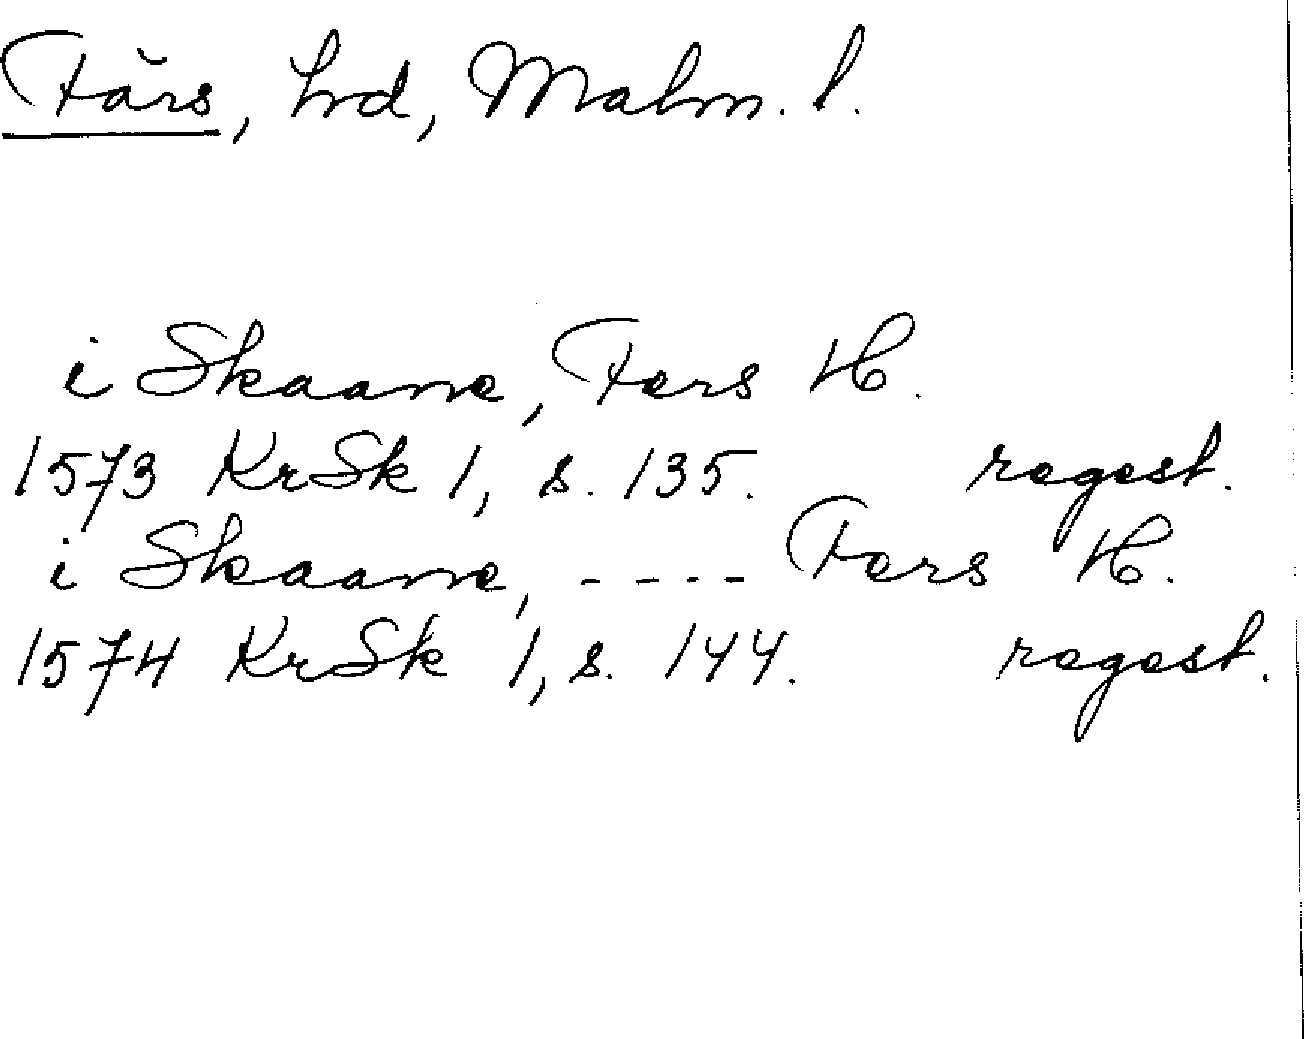 Färs, hrd, Malm. l.
i Skaane, Fers H.
1573 KrSk 1, s. 135. regest.
i Skaane, ---- Fers H.
1574 KrSk 1, s. 144. regest.